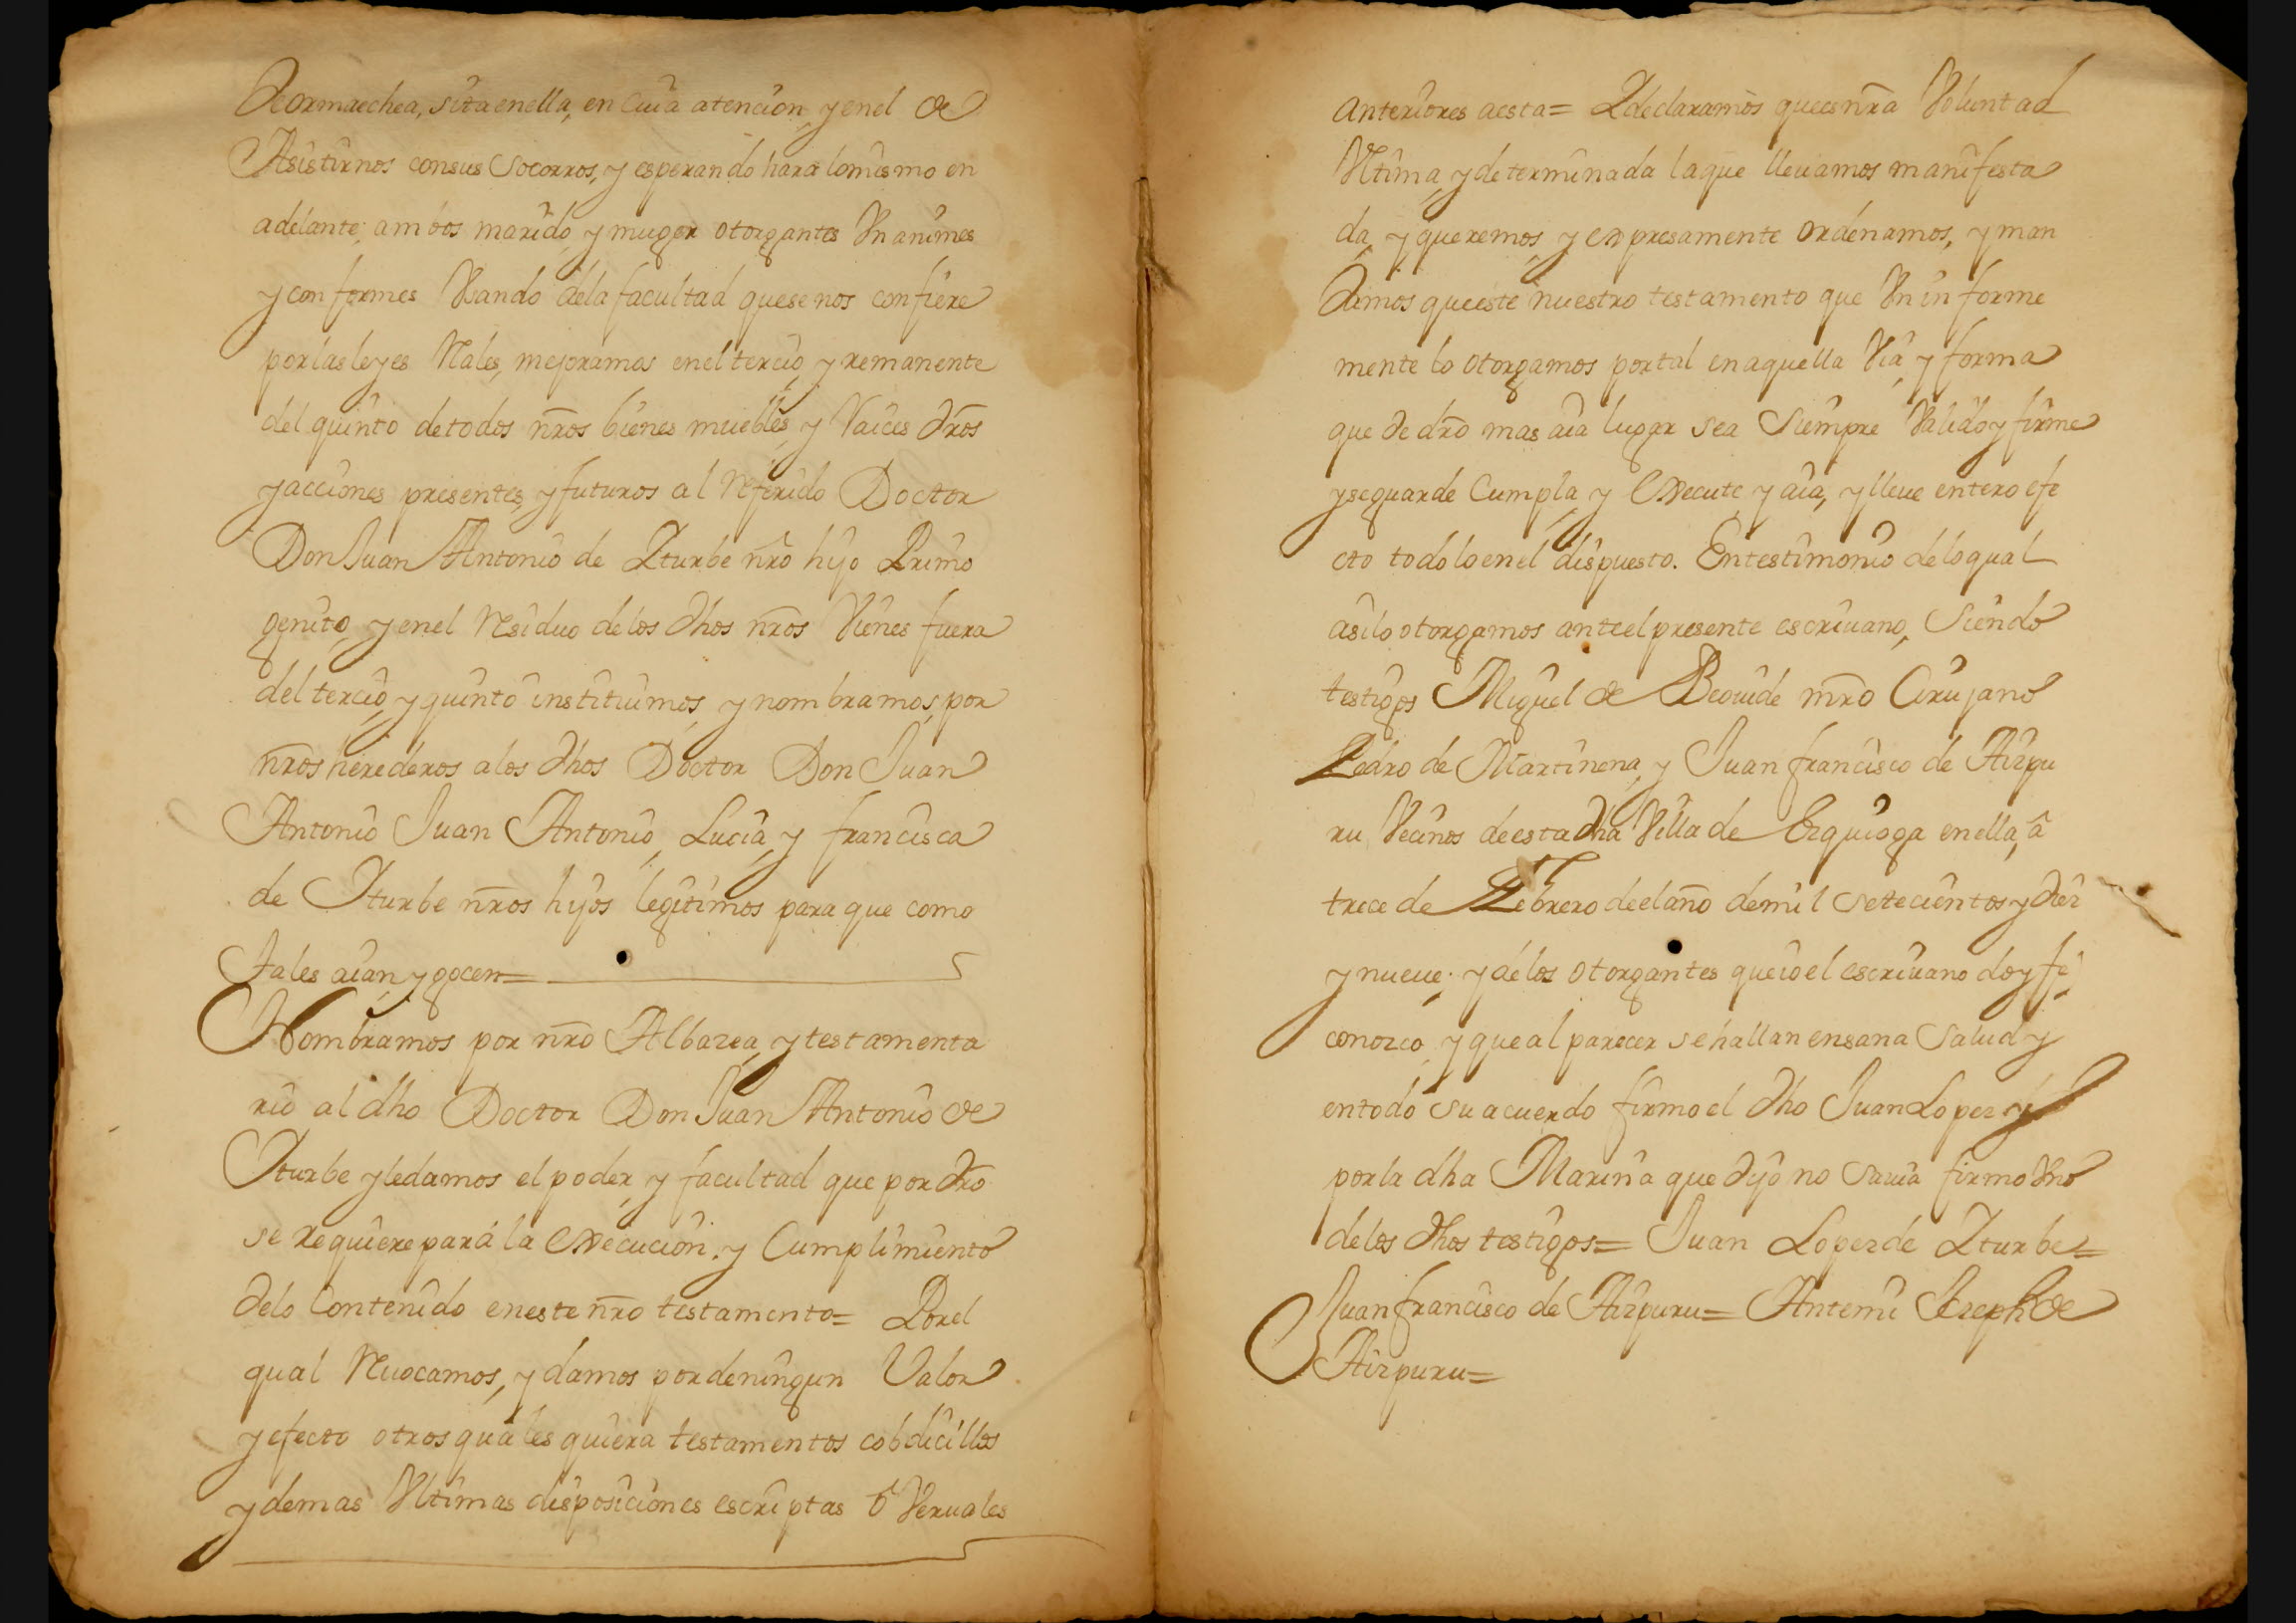 de ormaechea, sita en ella, en Cuia atencion, y en el de
Asistirnos con sus Socorros, y esperando hara lo mismo en
adelante; ambos marido, y muger otorgantes Vnanimes
y conformes Vsando de la facultad que se nos confiere
por las leyes Rales, mejoramos en el tercio, y remanente
del quinto de todos nr̃os bienes muebles, y Raices dr̃os
y acciones presentes, y futuros al Referido Doctor
Don Juan Antonio de Yturbe nr̃o hijo Primo
genito, y en el Residuo de los dhos nr̃os Vienes fuera
del tercio, y quinto instituimos, y nombramos, por
nr̃os herederos a los dhos Doctor Don Juan
Antonio Juan Antonio, Lucia, y francisca
de Yturbe nr̃os hijos legitimos para que como
tales aian, y gocen=
Nombramos por nr̃o Albazea, y testamenta
rio al dho Doctor Don Juan Antonio de
Yturbe y le damos el poder, y facultad que por dr̃o
se requiere para la execucion, y Cumplimiento
de lo Contenido en este nr̃o testamento= Por el
qual Reuocamos, y damos por de ningun Valor
y efecto otros quales quiera testamentos cobdicillos
y demas Vltimas disposiciones escriptas ô Veruales
anteriores a esta= Y declaramos que es nr̃a Voluntad
Vltima, y determinada la que lleuamos manifesta
da, y queremos, y expresamente ordenamos, y man
damos que este nuestro testamento que Vninforme
mente lo otorgamos por tal en aquella Via, y forma
que de dr̃o mas aia lugar sea Siempre Valido y firme
y se guarde Cumpla, y execute, y aia, y lleue entero efe
cto todo lo en el dispuesto. En testimonio de lo qual
asi lo otorgamos ante el presente escriuano, Siendo
testigos Miguel de Beouide mr̃o Cirujano
Pedro de Martinena, y Juan francisco de Aizpu
ru Vecinos de esta dha Villa de Ezquioga en ella, â
trece de Febrero de el año de mil Setecientos y diez
y nueue; y de los otorgantes que io el escriuano doy fe,
conozco, y que al parecer se hallan en sana Salud y
en todo su acuerdo firmo el dho Juan Lopez y
por la dha Marina que dijo no Sauia firmo Vno
de los dhos testigos= Juan Lopez de Yturbe=
Juan francisco de Aizpuru= Antemi Jozeph de
Aizpuru=